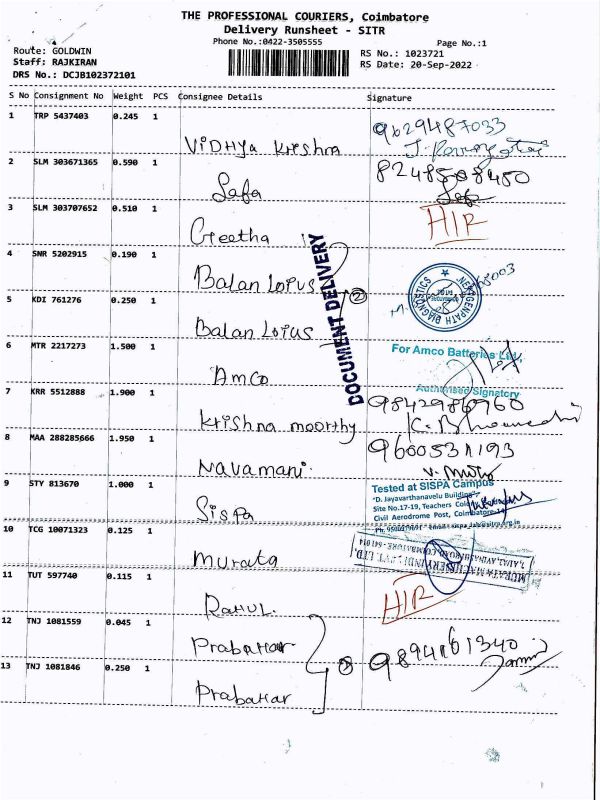 THE PROFESSIONAL COURIERS, Coimbatore
Delivery Runsheet - SITR
Phone No.:0422-3505555
Page No.:1
Route: GOLDWIN
Staff: RAJKIRAN
DRS No.: DCJB102372101
RS No.: 1023721
RS Date: 20-Sep-2022
S No Consignment No Weight PCS Consignee Details Signature
1 TRP 5437403 0.245 1
VIDHya Krishna
9629487033
2 SLM 303671365 0.590 1
Safa
8248508450
3 SLM 303707652 0.510 1
Geetha
HIR
4 SNR 5202915 0.190 1
Balan Lotus
5 KDI 761276 0.250 1
Balan Lotus
2
DOCUMENT DELIVERY
6 MTR 2217273 1.500 1
Amco
For Amco Batteries Ltd.
Authorised Signatory
7 KRR 5512888 1.900 1
Krishna moorthy
9842986960
8 MAA 288285666 1.950 1
Navamani
9600531193
9 STY 813670 1.000 1
Sispa
Tested at SISPA Campus
"D. Jayavarthanavelu Building"
Site No.17-19, Teachers Colony
Civil Aerodrome Post, Coimbatore-14
10 TCG 10071323 0.125 1
Murata
MURATA MACHINERY INDIA PVT LTD.
11 TUT 597740 0.115 1
RAHUL
HIR
12 TNJ 1081559 0.045 1
Prabahar
13 TNJ 1081846 0.250 1
Prabahar
9894161340